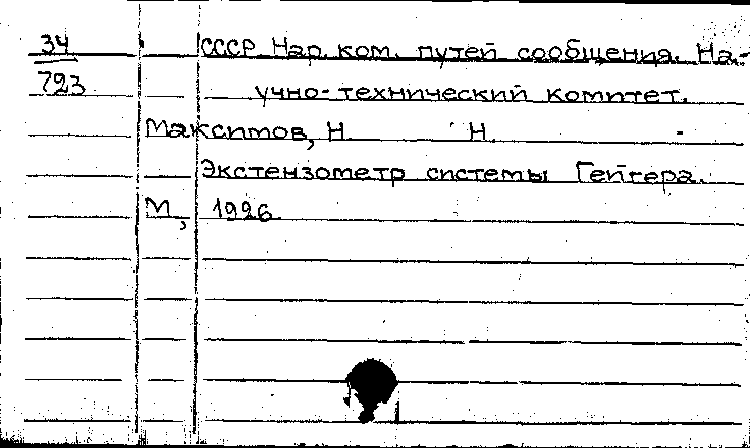 34
СССР Нар. ком. путей сообщения. На-
723
учно-технический комитет.
Максимов, Н. Н.
Экстензометр системы Гейгера.
М, 1926